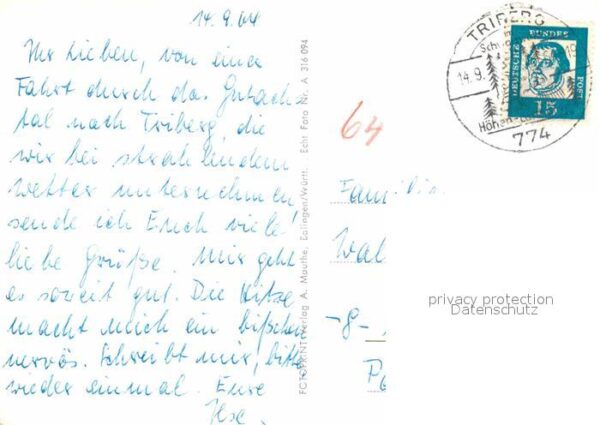 14.9.64
Ihr Lieben, von einer
Fahrt durch das Gutach
tal nach Triberg, die
wir bei strahlendem
Wetter unternehmen
sende ich Euch viele
liebe Grüße. Mir geht
es soweit gut. Die Hitze
macht mich ein bißchen
nervös. Schreibt mir, bitte
wieder einmal. Eure
Ilse.
FOTOPRINT-Verlag A. Mauthe, Ebingen/Württ. Echt Foto Nr. A 316 094
64
TRIBERG
14.9.
774
DEUTSCHE BUNDES POST
15
Familie
Wal
-8-
privacy protection
Datenschutz